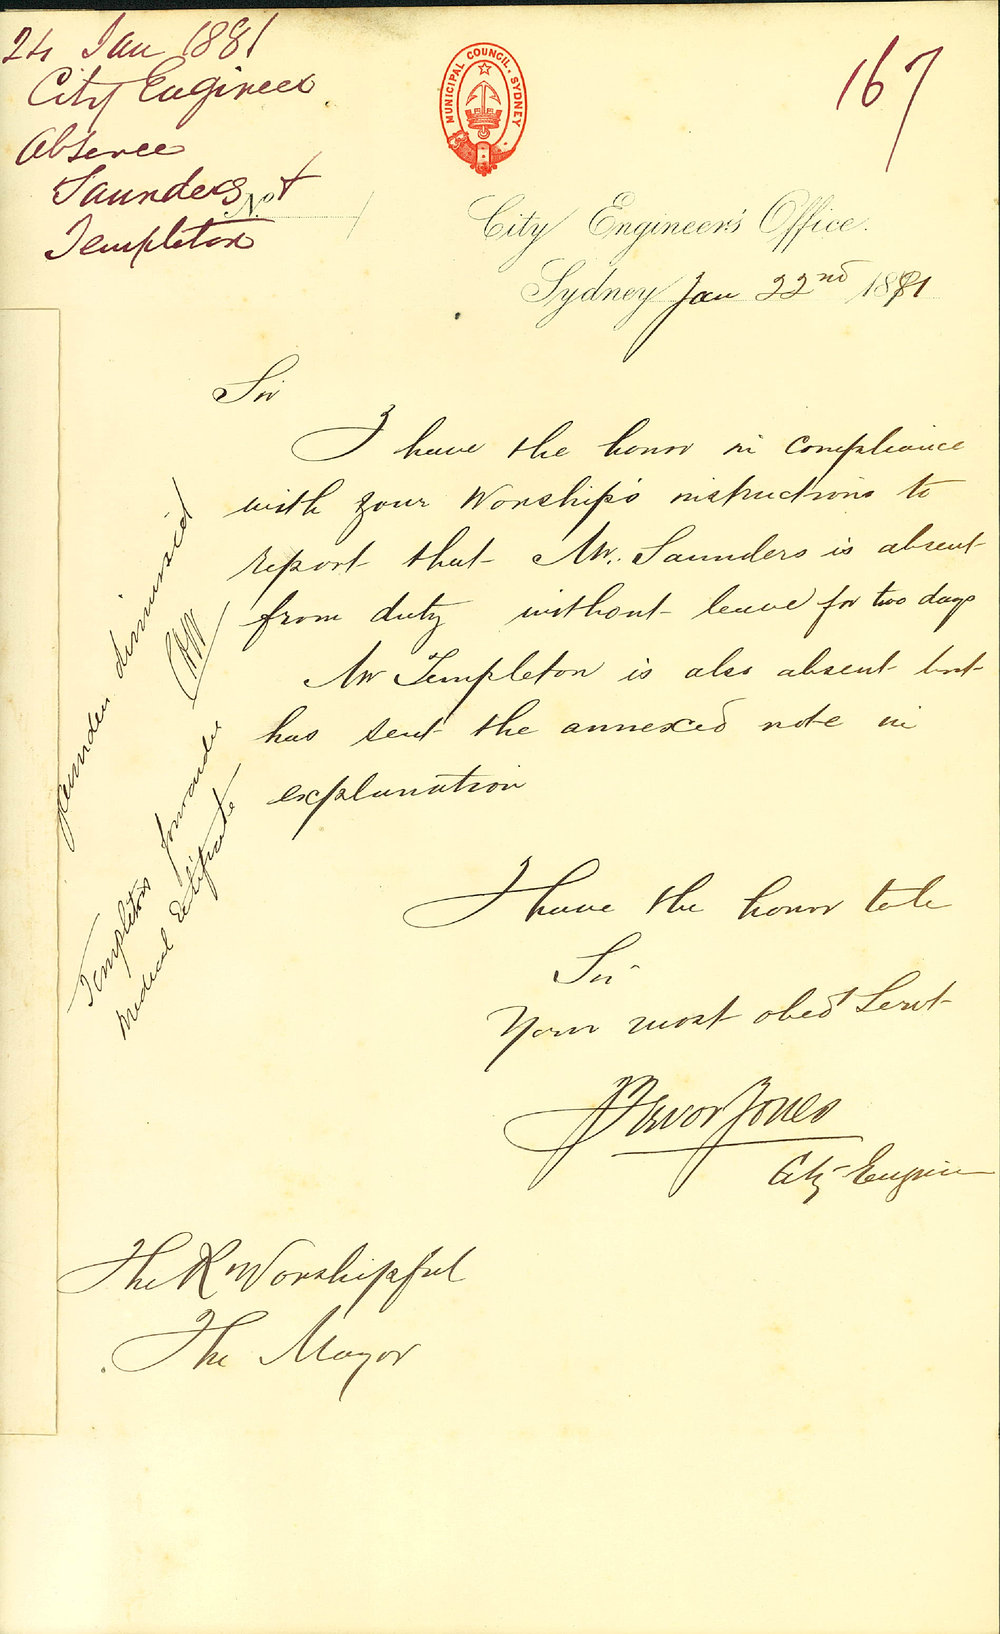 24 Jan 1881
City Engineer
Absence
Saunders &
Templeton
No.
167
MUNICIPAL COUNCIL. SYDNEY
City Engineer's Office.
Sydney Jan 22nd 1881
Sir
I have the honor in compliance
with your Worship's instructions to
report that Mr. Saunders is absent
from duty without leave for two days
Mr Templeton is also absent but
has sent the annexed note in
explanation
I have the honor to be
Sir
Your most obed Servt
Trevor Jones
City Engineer
The Rt Worshipful
The Mayor
Saunders dismissed
Templeton forwarded
Medical Certificate